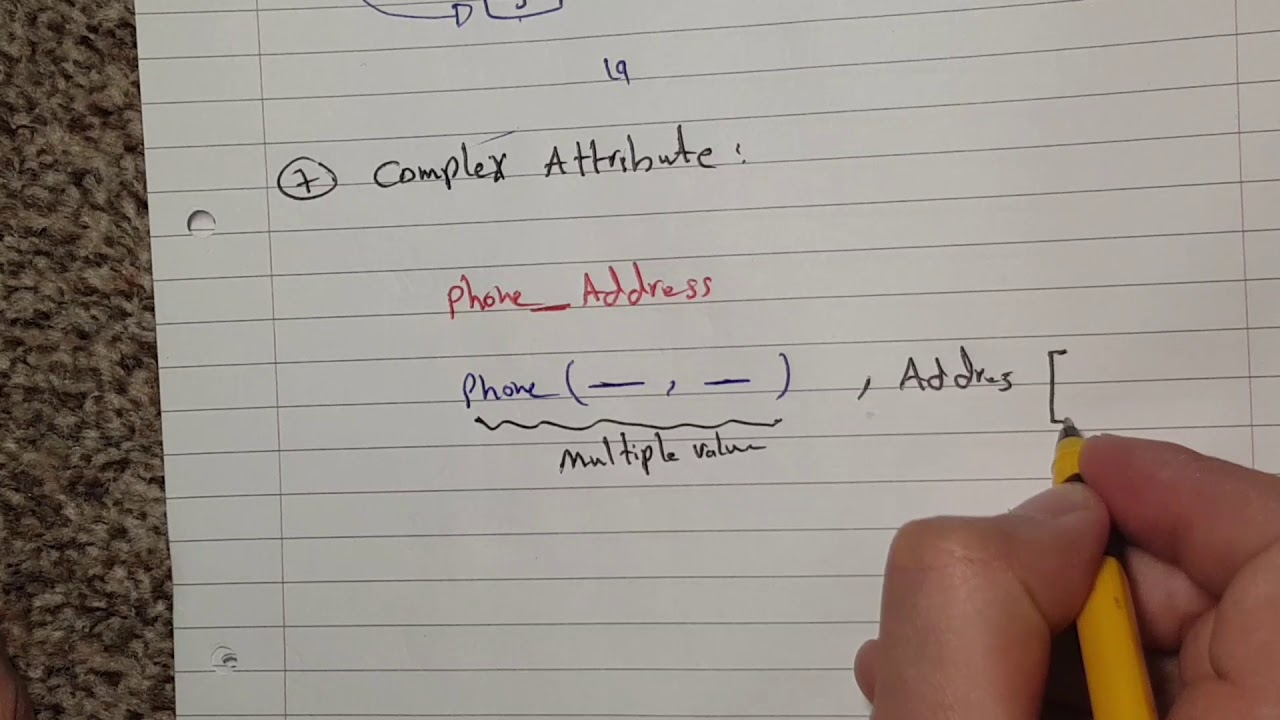 D
19
7 Complex Attribute:
Phone_Address
Phone ( — , — ) , Addres [
Multiple value